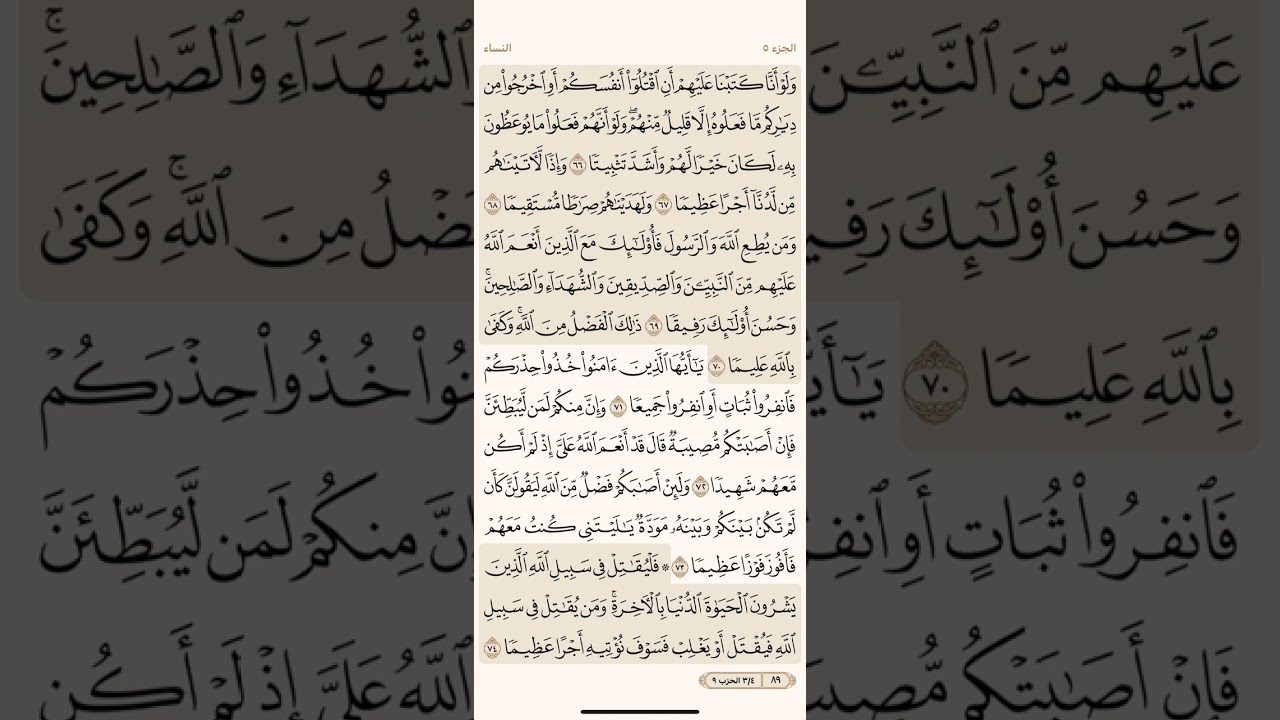 الجزء ٥
النساء
وَلَوْ أَنَّا كَتَبْنَا عَلَيْهِمْ أَنِ ٱقْتُلُوٓا۟ أَنفُسَكُمْ أَوِ ٱخْرُجُوا۟ مِن
دِيَـٰرِكُم مَّا فَعَلُوهُ إِلَّا قَلِيلٌ مِّنْهُمْ ۖ وَلَوْ أَنَّهُمْ فَعَلُوا۟ مَا يُوعَظُونَ
بِهِۦ لَكَانَ خَيْرًا لَّهُمْ وَأَشَدَّ تَثْبِيتًا ٦٦ وَإِذًا لَّـَٔاتَيْنَـٰهُم
مِّن لَّدُنَّآ أَجْرًا عَظِيمًا ٦٧ وَلَهَدَيْنَـٰهُمْ صِرَٰطًا مُّسْتَقِيمًا ٦٨
وَمَن يُطِعِ ٱللَّهَ وَٱلرَّسُولَ فَأُو۟لَـٰٓئِكَ مَعَ ٱلَّذِينَ أَنْعَمَ ٱللَّهُ
عَلَيْهِم مِّنَ ٱلنَّبِيِّـۧنَ وَٱلصِّدِّيقِينَ وَٱلشُّهَدَآءِ وَٱلصَّـٰلِحِينَ ۚ
وَحَسُنَ أُو۟لَـٰٓئِكَ رَفِيقًا ٦٩ ذَٰلِكَ ٱلْفَضْلُ مِنَ ٱللَّهِ ۚ وَكَفَىٰ
بِٱللَّهِ عَلِيمًا ٧٠ يَـٰٓأَيُّهَا ٱلَّذِينَ ءَامَنُوا۟ خُذُوا۟ حِذْرَكُمْ
فَٱنفِرُوا۟ ثُبَاتٍ أَوِ ٱنفِرُوا۟ جَمِيعًا ٧١ وَإِنَّ مِنكُمْ لَمَن لَّيُبَطِّئَنَّ
فَإِنْ أَصَـٰبَتْكُم مُّصِيبَةٌ قَالَ قَدْ أَنْعَمَ ٱللَّهُ عَلَىَّ إِذْ لَمْ أَكُن
مَّعَهُمْ شَهِيدًا ٧٢ وَلَئِنْ أَصَـٰبَكُمْ فَضْلٌ مِّنَ ٱللَّهِ لَيَقُولَنَّ كَأَن
لَّمْ تَكُنۢ بَيْنَكُمْ وَبَيْنَهُۥ مَوَدَّةٌ يَـٰلَيْتَنِى كُنتُ مَعَهُمْ
فَأَفُوزَ فَوْزًا عَظِيمًا ٧٣ ۞ فَلْيُقَـٰتِلْ فِى سَبِيلِ ٱللَّهِ ٱلَّذِينَ
يَشْرُونَ ٱلْحَيَوٰةَ ٱلدُّنْيَا بِٱلْـَٔاخِرَةِ ۚ وَمَن يُقَـٰتِلْ فِى سَبِيلِ
ٱللَّهِ فَيُقْتَلْ أَوْ يَغْلِبْ فَسَوْفَ نُؤْتِيهِ أَجْرًا عَظِيمًا ٧٤
٨٩
٣/٤ الحزب ٩